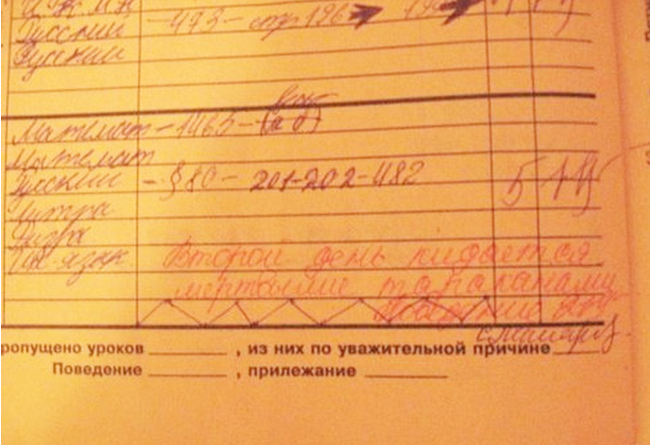 Русский - 493 - стр 196
Русский
Математ - 1465 - (а б)
Математ
Русский - §80 - 201-202-482 5
Ин-язык Второй день кидается
мёртвыми тараканами
ропущено уроков , из них по уважительной причине
Поведение , прилежание